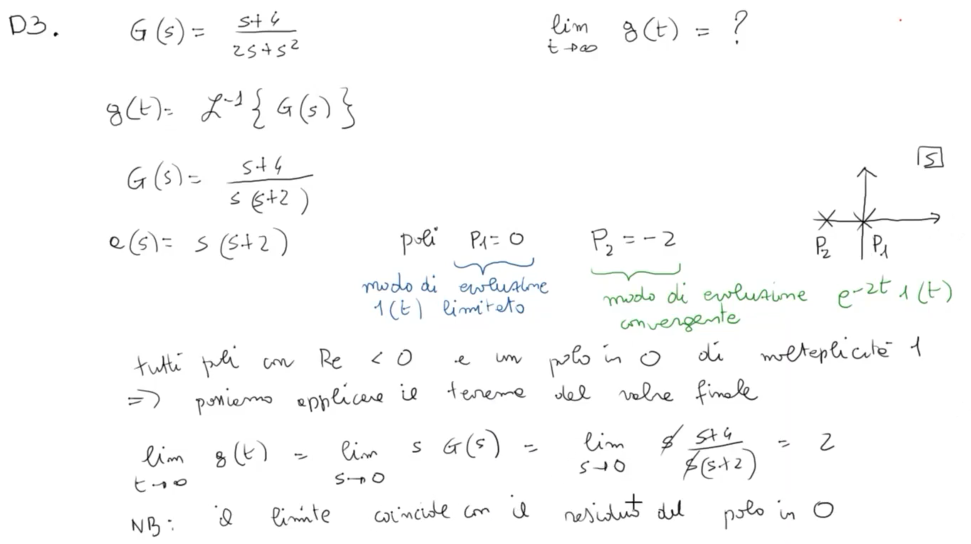 D3. G(s) = s+4 / 2s+s² lim t→∞ g(t) = ?
g(t) = ℒ⁻¹ { G(s) }
G(s) = s+4 / s(s+2)
s
a(s) = s(s+2) poli P₁ = 0 P₂ = -2
P₂ P₁
modo di evoluzione
1(t) limitato
modo di evoluzione e^-2t 1(t)
convergente
tutti poli con Re < 0 e un polo in 0 di molteplicità 1
=> possiamo applicare il teorema del valore finale
lim t→∞ g(t) = lim s→0 s G(s) = lim s→0 s s+4 / s(s+2) = 2
NB: il limite coincide con il residuo del polo in 0